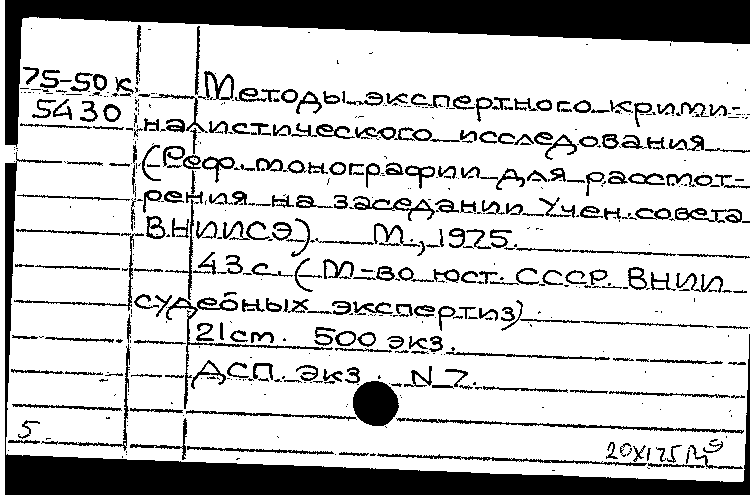 75-50к Методы экспертного крими-
5430 налистического исследования
(Реф. монографии для рассмот-
рения на заседании Учен. совета
ВНИИСЭ). М., 1975.
43 с. (М-во юст. СССР. ВНИИ
судебных экспертиз)
21 см. 500 экз.
ДСП. экз. N 7.
5